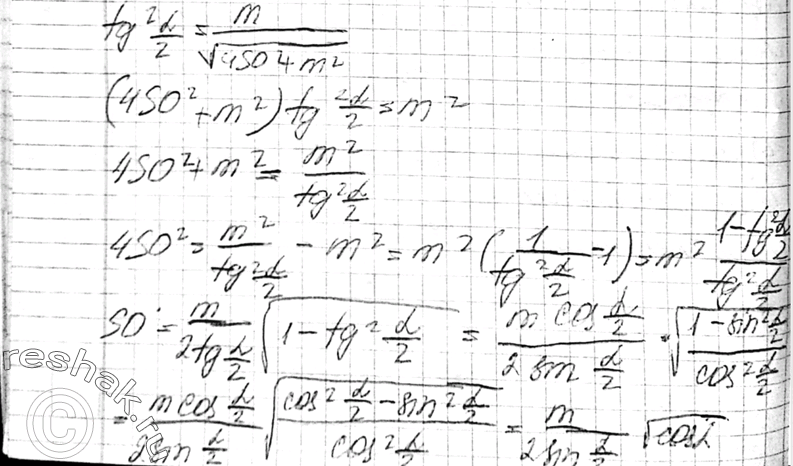 tg² α/2 = m/√(4SO²+m²)
(4SO²+m²) tg² α/2 = m²
4SO²+m² = m²/(tg² α/2)
4SO² = m²/(tg² α/2) - m² = m² (1/(tg² α/2) - 1) = m² (1-tg² α/2)/(tg² α/2)
SO = m/(2tg α/2) √(1-tg² α/2) = (m cos α/2)/(2 sin α/2) · √((1-sin² α/2)/(cos² α/2))
= (m cos α/2)/(2sin α/2) √((cos² α/2 - sin² α/2)/(cos² α/2)) = m/(2sin α/2) √cosα
©Reshak.ru